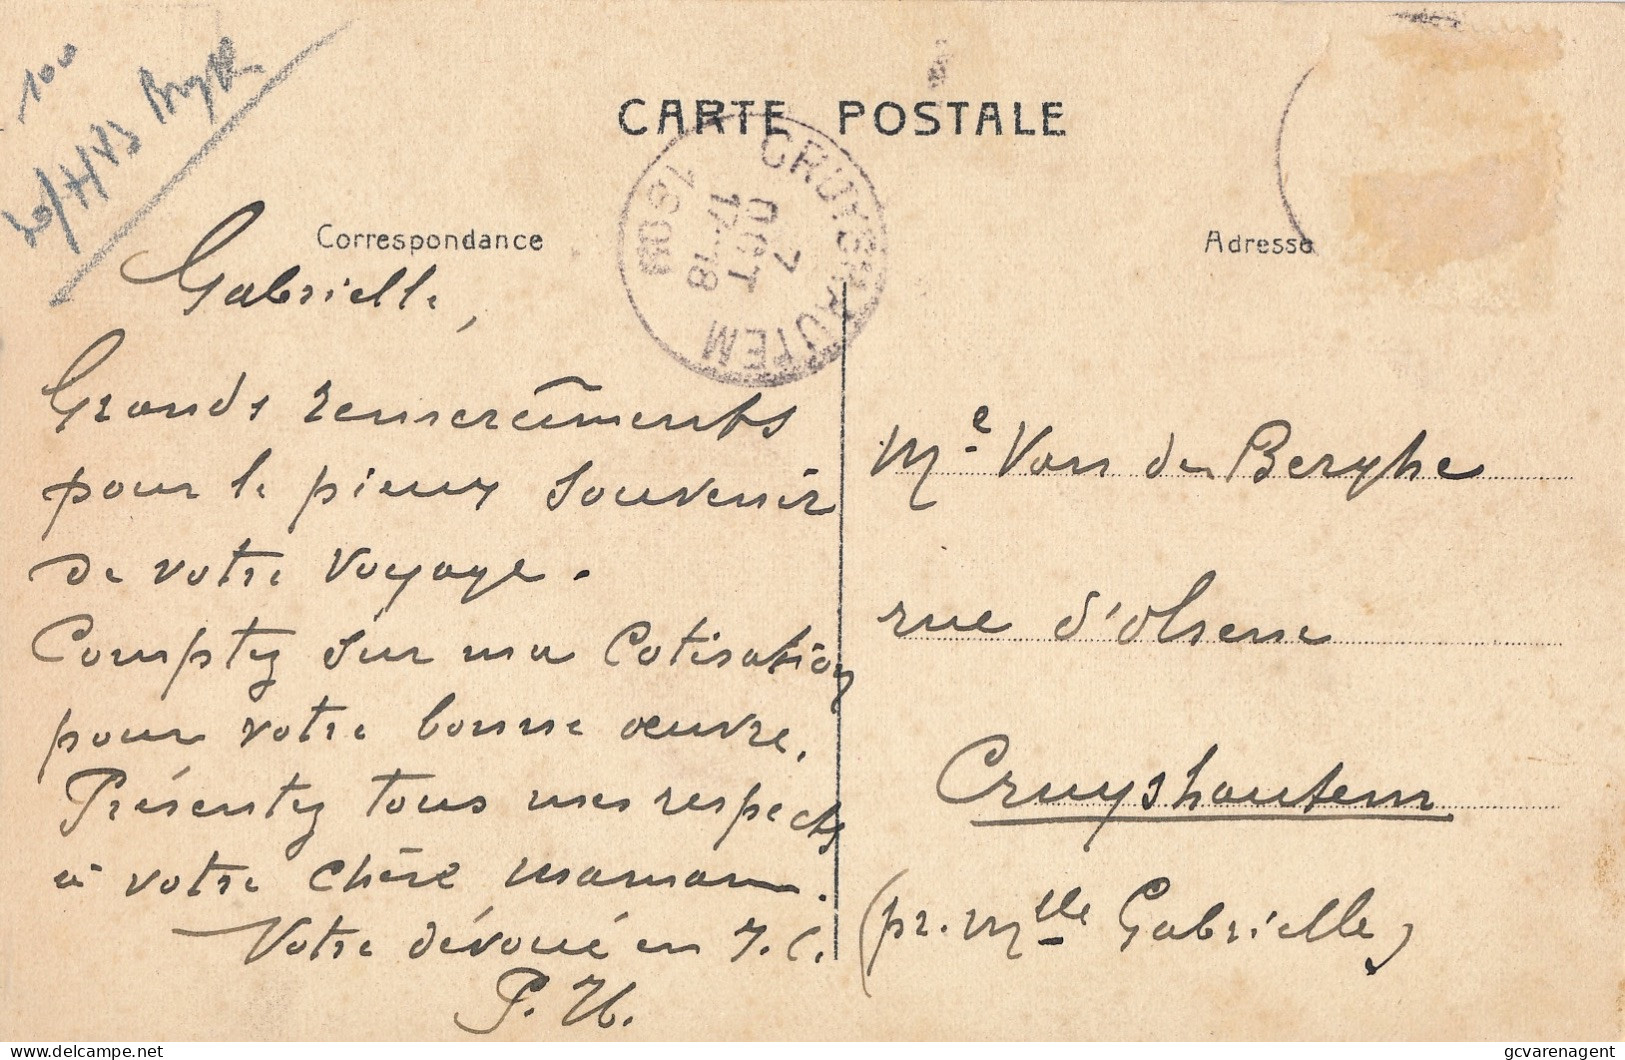 100
CARTE POSTALE
CRUYSHAUTEM
17-18
7
Correspondance
Adresse
Gabrielle,
Grands remerciements
pour le pieux souvenir
de votre voyage.
Comptez sur ma cotisation
pour votre bonne œuvre.
Présentez tous mes respects
à votre chère maman.
Votre dévoué en J.C.
P. H.
Me Van den Berghe
rue d'Olsene
Cruyshautem
(pr. Mlle Gabrielle)
gcvarenagent